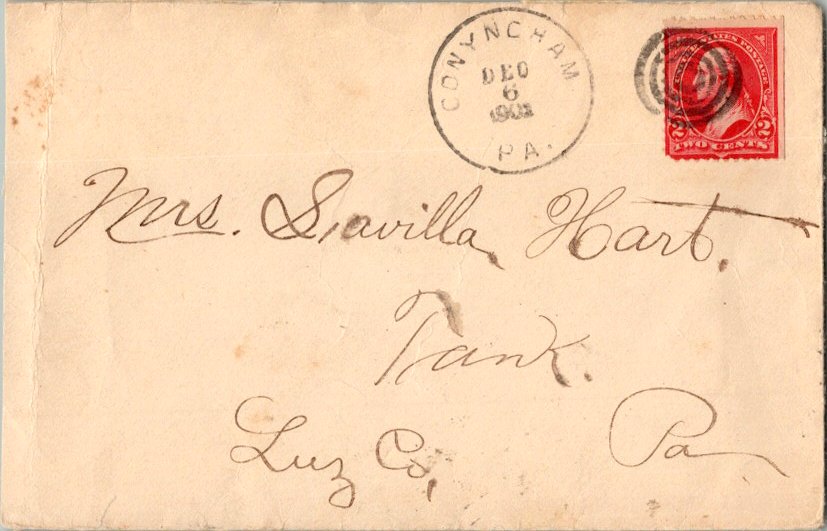 CONYNGHAM
DEC
6
PA.
UNITED STATES POSTAGE
2 2
TWO CENTS
Mrs. Savilla Hart.
Tank.
Luz Co, Pa